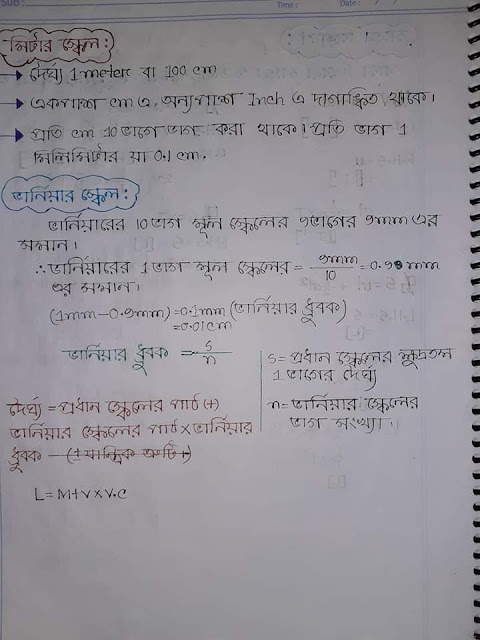 Time:
Date: / /
মিটার স্কেল:
→ দৈর্ঘ্য 1 meterc বা 100 cm
→ একপাশ cm এ, অন্যপাশ Inch এ দাগাঙ্কিত থাকে।
→ প্রতি cm 10 ভাগে ভাগ করা থাকে। প্রতি ভাগ 1
মিলিমিটার যা 0.1 cm.
ভার্নিয়ার স্কেল:
ভার্নিয়ারের 10 ভাগ মূল স্কেলের 9 ভাগের 9mm এর
সমান।
∴ ভার্নিয়ারের 1 ভাগ মূল স্কেলের = 9mm/10 = 0.9 mm
এর সমান।
(1mm-0.9mm) = 0.1mm (ভার্নিয়ার ধ্রুবক)
= 0.01cm
ভার্নিয়ার ধ্রুবক = s/n
s = প্রধান স্কেলের ক্ষুদ্রতম
1 ভাগের দৈর্ঘ্য
n = ভার্নিয়ার স্কেলের
ভাগ সংখ্যা।
দৈর্ঘ্য = প্রধান স্কেলের পাঠ (+)
ভার্নিয়ার স্কেলের পাঠ × ভার্নিয়ার
ধ্রুবক - (± যান্ত্রিক ত্রুটি)
L = M+V×V.C